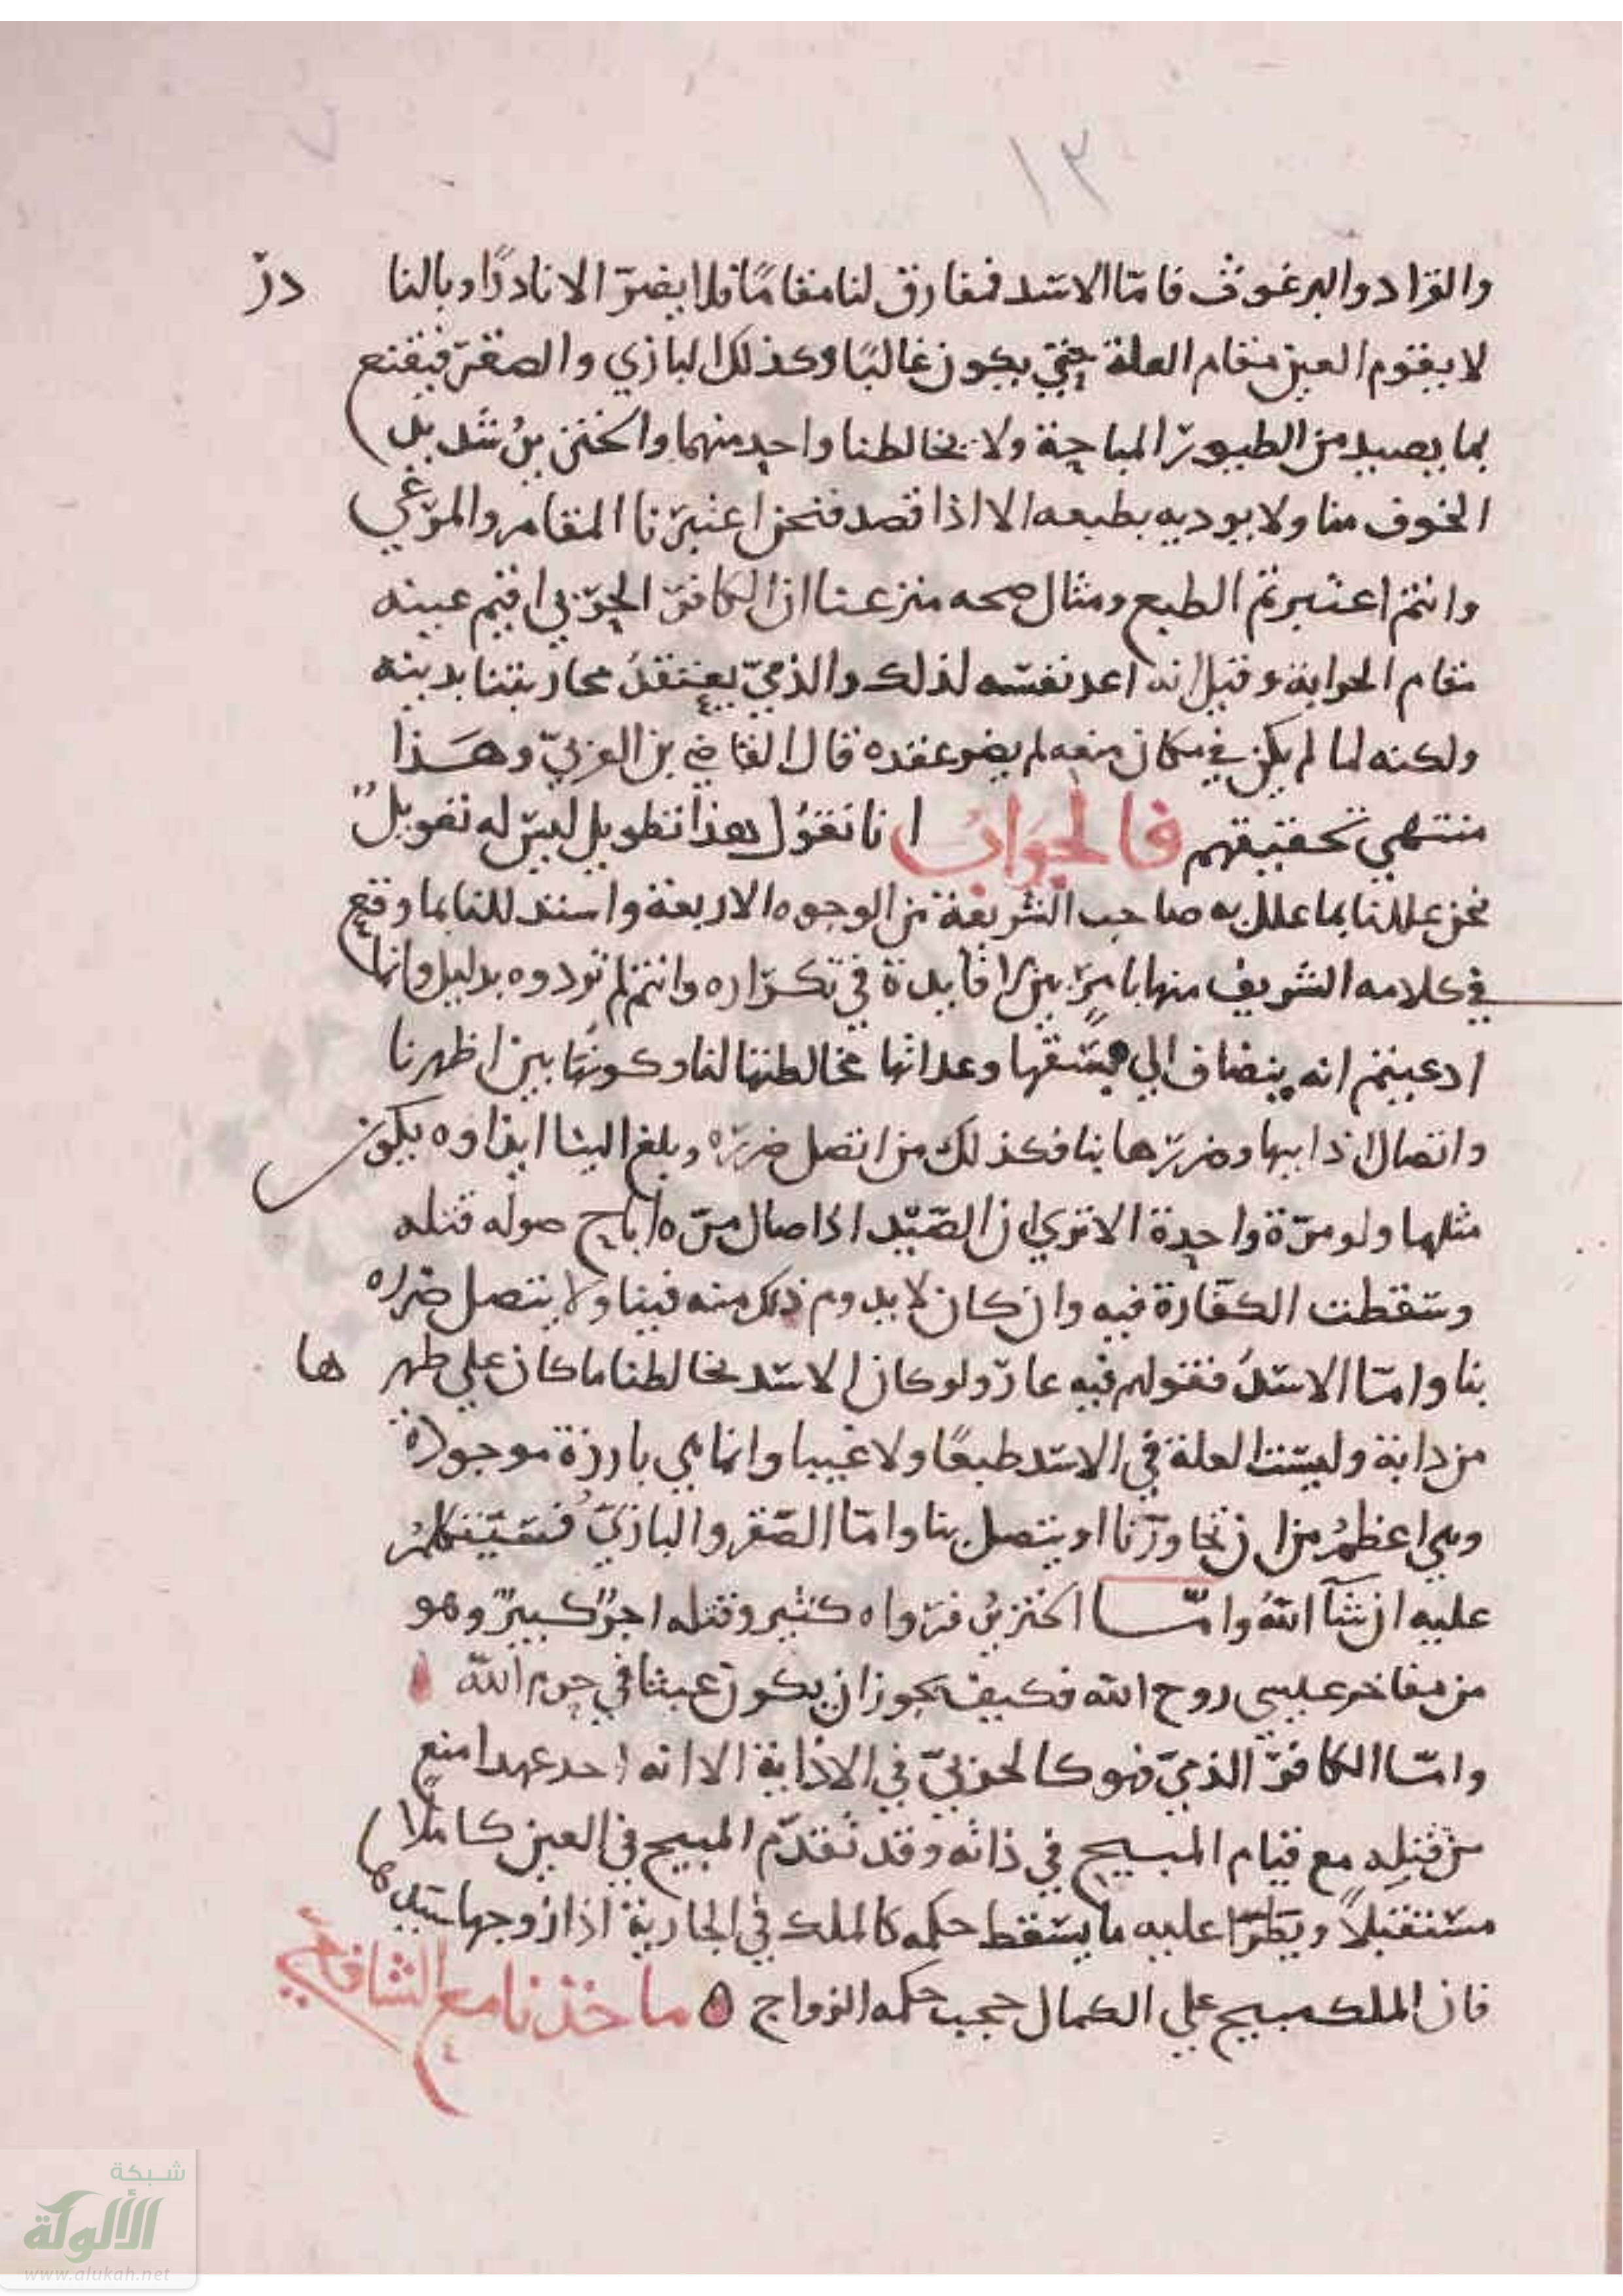 ١٣
والقراد والبرغوث فاما الاسد فمفارق لنا مقاما فلا يضر الا نادرا وبالنا در
لا يقوم العين مقام العلة حتى يكون غالبا وكذلك البازي والصقر فيقنع
بما يصيد من الطيور المباحة ولا يخالطنا واحد منهما والخنزير شديد
الخوف منا ولا يوديه بطبعه الا اذا قصد فنحن اعتبرنا المقام والمرعي
وانتم اعتبرتم الطبع ومثال صحه منزعنا ان الكافر الحربي اقيم عينه
مقام الحرابة وقيل انه اعد نفسه لذلك والذمي يعتقد محاربتنا بدينه
ولكنه لما لم يكن في مكان منعه لم يضر عقده قال القاضي بن العربي وهذا
منتهي تحقيقهم فالجواب انا نقول هذا تطويل ليس له تعويل
نحن عللنا بما علل به صاحب الشريعة من الوجوه الاربعة واسند للنا بما وقع
في كلامه الشريف منها بامرين لا فايدة في تكراره وانتم لم تردوه بدليل وانما
ادعيتم انه ينضاف الي فسقها وعدائها مخالطتها لنا وكونها بين اظهرنا
واتصال اذايتها وضررها بنا فكذلك من اتصل ضرره وبلغ الينا ايذاوه يكون
مثلها ولو مرة واحدة الا تري ان الصيد اذا صال مره اباح صوله قتله
وسقطت الكفارة فيه وان كان لا يدوم ذلك منه فينا ولا يتصل ضراره
بنا واما الاسد فقولهم فيه عار ولو كان الاسد يخالطنا ما كان علي ظهر ها
من دابة وليست العلة في الاسد طبعا ولا غيبا وانما هي بارزة موجودة
وهي اعظم من ان تجاورنا او يتصل بنا واما الصقر والبازي فسيتكلم
عليه ان شآ الله واما الخنزير فضرواه كثير وقتله اجر كبير وهو
من مفاخر عيسى روح الله فكيف يجوز ان يكون عبثا في حرم الله
واما الكافر الذمي فهو كالحربي في الاذاية الا انه احد عهدا منع
من قتله مع قيام المبيح في ذاته وقد تقدم المبيح في العين كاملا
مستقبلا ويطرا عليه ما يسقط حكمه كالملك في الجارية اذا زوجها سيدها
فان الملك مبيح علي الكمال حجب حكمه الزواج ه ماخذنا مع الشافعي
شبكة
الألوكة
www.alukah.net